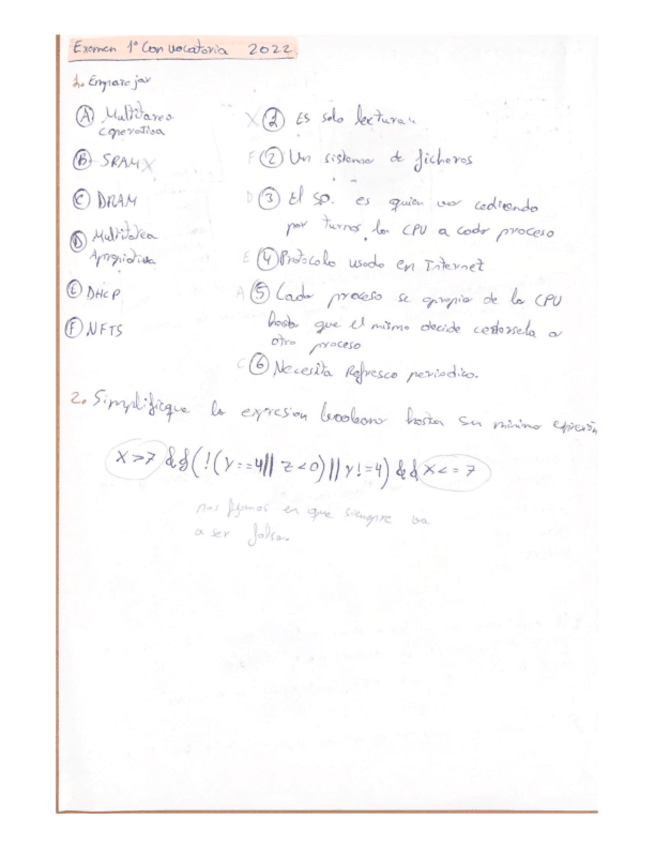 Examen 1ª Convocatoria 2022
1. Emparejar
A Multitarea
cooperativa
B SRAM X
C DRAM
D Multitarea
Apropiativa
E DHCP
F NFTS
X 1 Es solo lectura.
F 2 Un sistema de ficheros
D 3 El SO. es quien va cediendo
por turnos la CPU a cada proceso
E 4 Protocolo usado en Internet
A 5 Cada proceso se apropia de la CPU
hasta que el mismo decide
otro proceso
C 6 Necesita Refresco periodico.
2. Simplifique la expresion booleana hasta su minima expresión
X>7 && (!(Y==4 || Z<0) || Y!=4) && X<=7
nos fijamos en que siempre va
a ser falso.